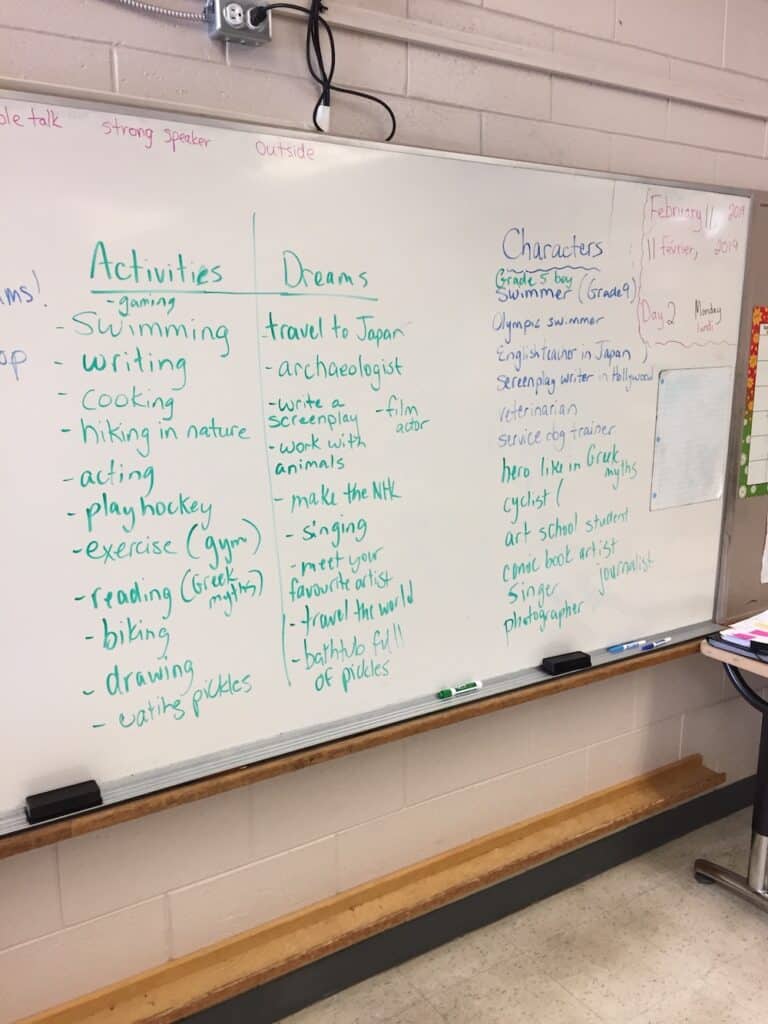 ble talk
strong speaker
outside
February 11 2019
11 février, 2019
Day 2 Monday
lundi
ms!
op
Activities
- gaming
- Swimming
- writing
- cooking
- hiking in nature
- acting
- play hockey
- exercise (gym)
- reading (Greek
myths)
- biking
- drawing
- eating pickles
Dreams
travel to Japan
- archaeologist
- write a
screenplay
- film
actor
- work with
animals
- make the NHL
- singing
- meet your
favourite artist
- travel the world
- bathtub full
of pickles
Characters
Grade 5 boy
Swimmer (Grade 9)
Olympic swimmer
English teacher in Japan
screenplay writer in Hollywood
veterinarian
service dog trainer
hero like in Greek
myths
cyclist (
art school student
comic book artist
singer journalist
photographer